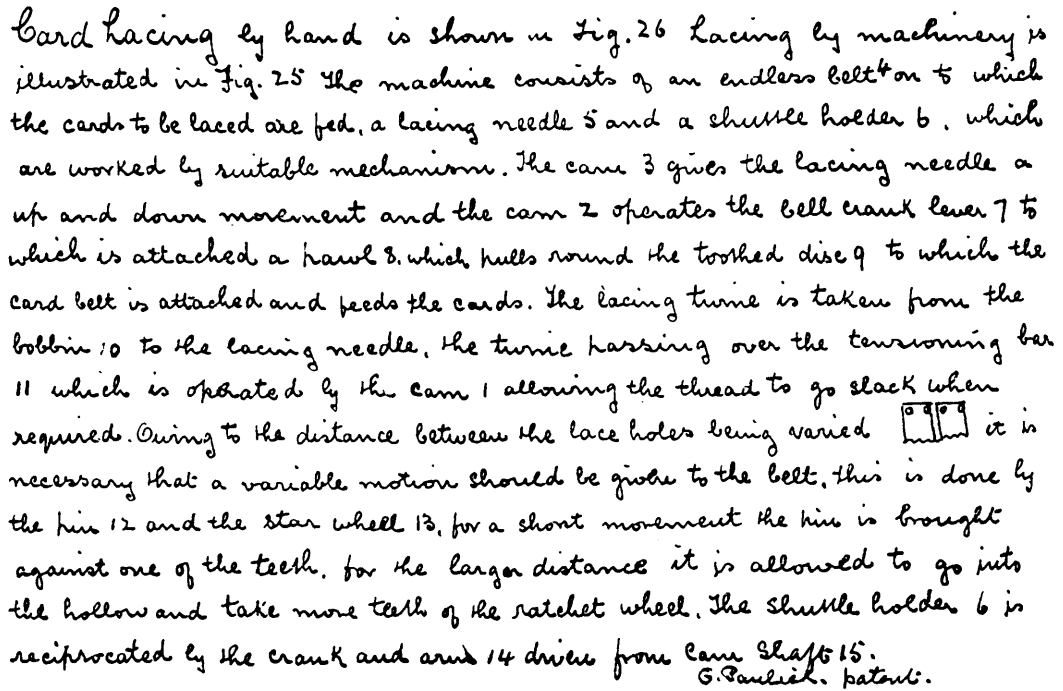 Card Lacing by hand is shown in Fig. 26 Lacing by machinery is
illustrated in Fig. 25 The machine consists of an endless belt 4 on to which
the cards to be laced are fed, a lacing needle 5 and a shuttle holder 6, which
are worked by suitable mechanism. The cam 3 gives the lacing needle a
up and down movement and the cam 2 operates the bell crank lever 7 to
which is attached a pawl 8. which pulls round the toothed disc 9 to which the
card belt is attached and feeds the cards. The lacing twine is taken from the
bobbin 10 to the lacing needle, the twine passing over the tensioning bar
11 which is operated by the cam 1 allowing the thread to go slack when
required. Owing to the distance between the lace holes being varied it is
necessary that a variable motion should be given to the belt, this is done by
the pin 12 and the star wheel 13, for a short movement the pin is brought
against one of the teeth. for the larger distance it is allowed to go into
the hollow and take more teeth of the ratchet wheel. The shuttle holder 6 is
reciprocated by the crank and arm 14 driven from Cam Shaft 15.
G. Paulich. patent.